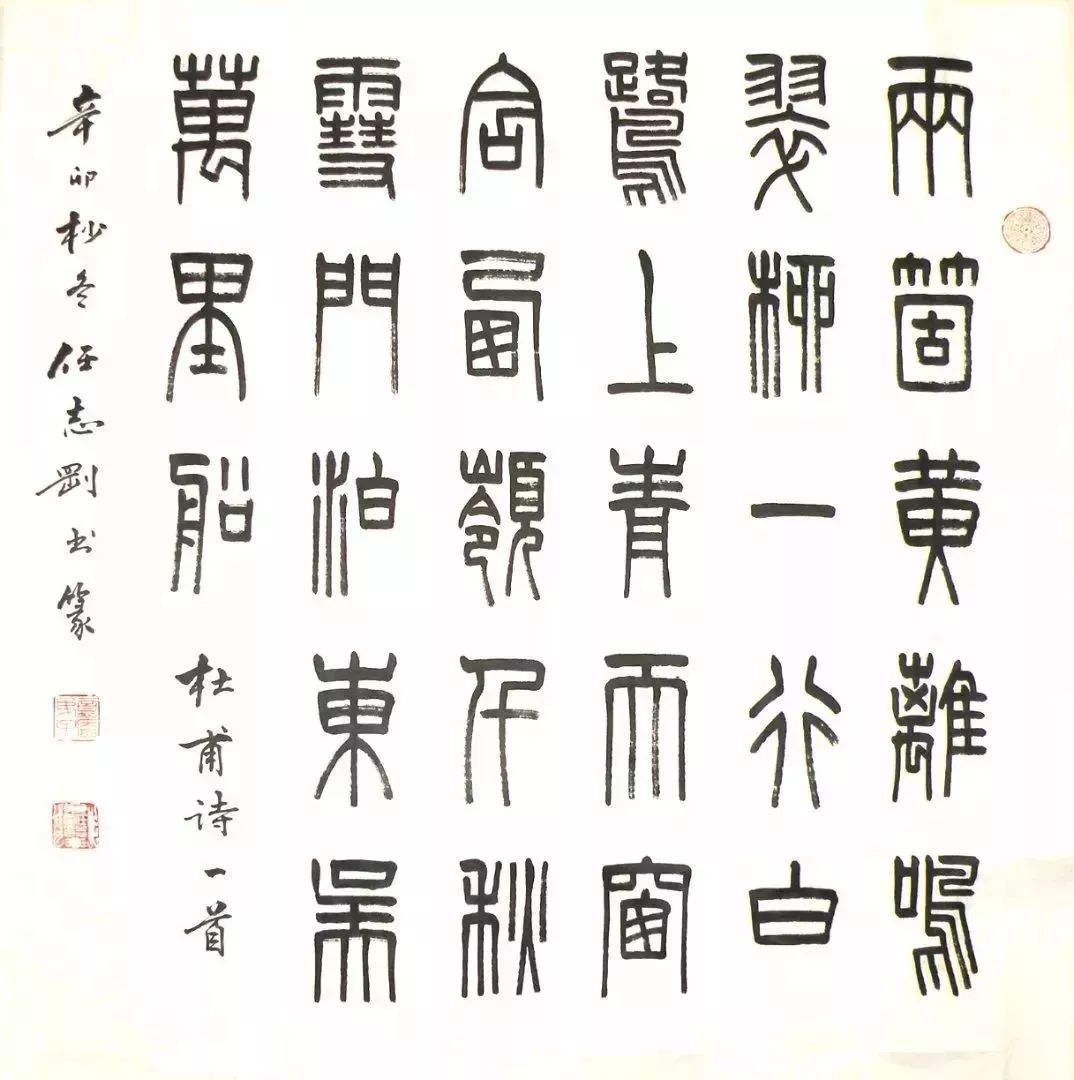 兩箇黃離鳴
翠柳一行白
鷺上青天窗
含西嶺千秋
雪門泊東吳
萬里船
杜甫诗一首
辛卯杪冬任志剛书篆